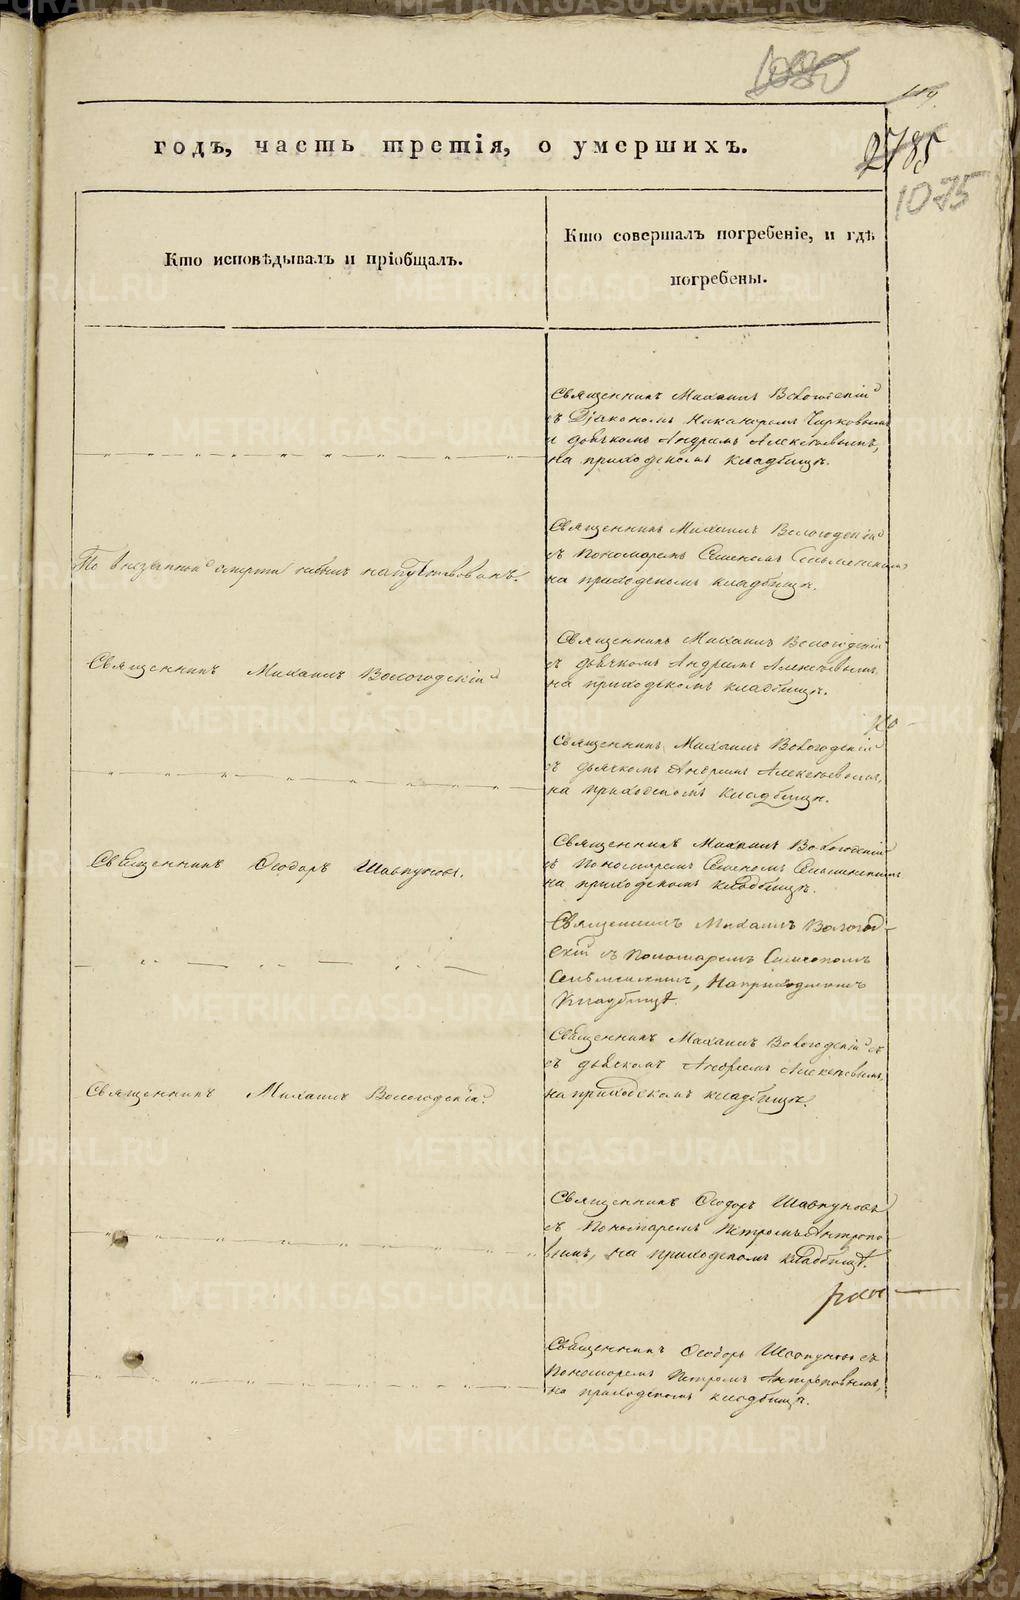 119.
2785
1075
годъ, часть третія, о умершихъ.
Кто исповѣдывалъ и пріобщалъ.
Кто совершалъ погребеніе, и гдѣ
погребены.
Священникъ Михаилъ Вологодскій
съ Діакономъ Никаноромъ Чирковымъ
и дьячкомъ Андреемъ Алексѣевымъ,
на приходскомъ кладбищѣ.
По внезапной смерти небылъ напутствованъ.
Священникъ Михаилъ Вологодскій
съ Пономаремъ Семеномъ
на приходскомъ кладбищѣ.
Священникъ Михаилъ Вологодскій
Священникъ Михаилъ Вологодскій
съ дьячкомъ Андреемъ Алексѣевымъ
на приходскомъ кладбищѣ.
Священникъ Михаилъ Вологодскій
съ дьячкомъ Андреемъ Алексѣевымъ,
на приходскомъ кладбищѣ.
Священникъ Ѳеодоръ Шавкуновъ.
Священникъ Михаилъ Вологодскій
съ Пономаремъ Семеномъ
на приходскомъ кладбищѣ.
Священникъ Михаилъ Вологод-
скій съ Пономаремъ Симеономъ
на приходскомъ
Кладбищѣ.
Священникъ Михаилъ Вологодскій
Священникъ Михаилъ Вологодскій
съ дьячкомъ Андреемъ Алексѣевымъ,
на приходскомъ кладбищѣ.
Священникъ Ѳеодоръ Шавкуновъ
съ Пономаремъ Петромъ Антропо-
вымъ, на приходскомъ кладбищѣ.
Священникъ Ѳеодоръ Шавкуновъ съ
Пономаремъ Петромъ Антроповымъ,
на приходскомъ кладбищѣ.
METRIKI.GASO-URAL.RU